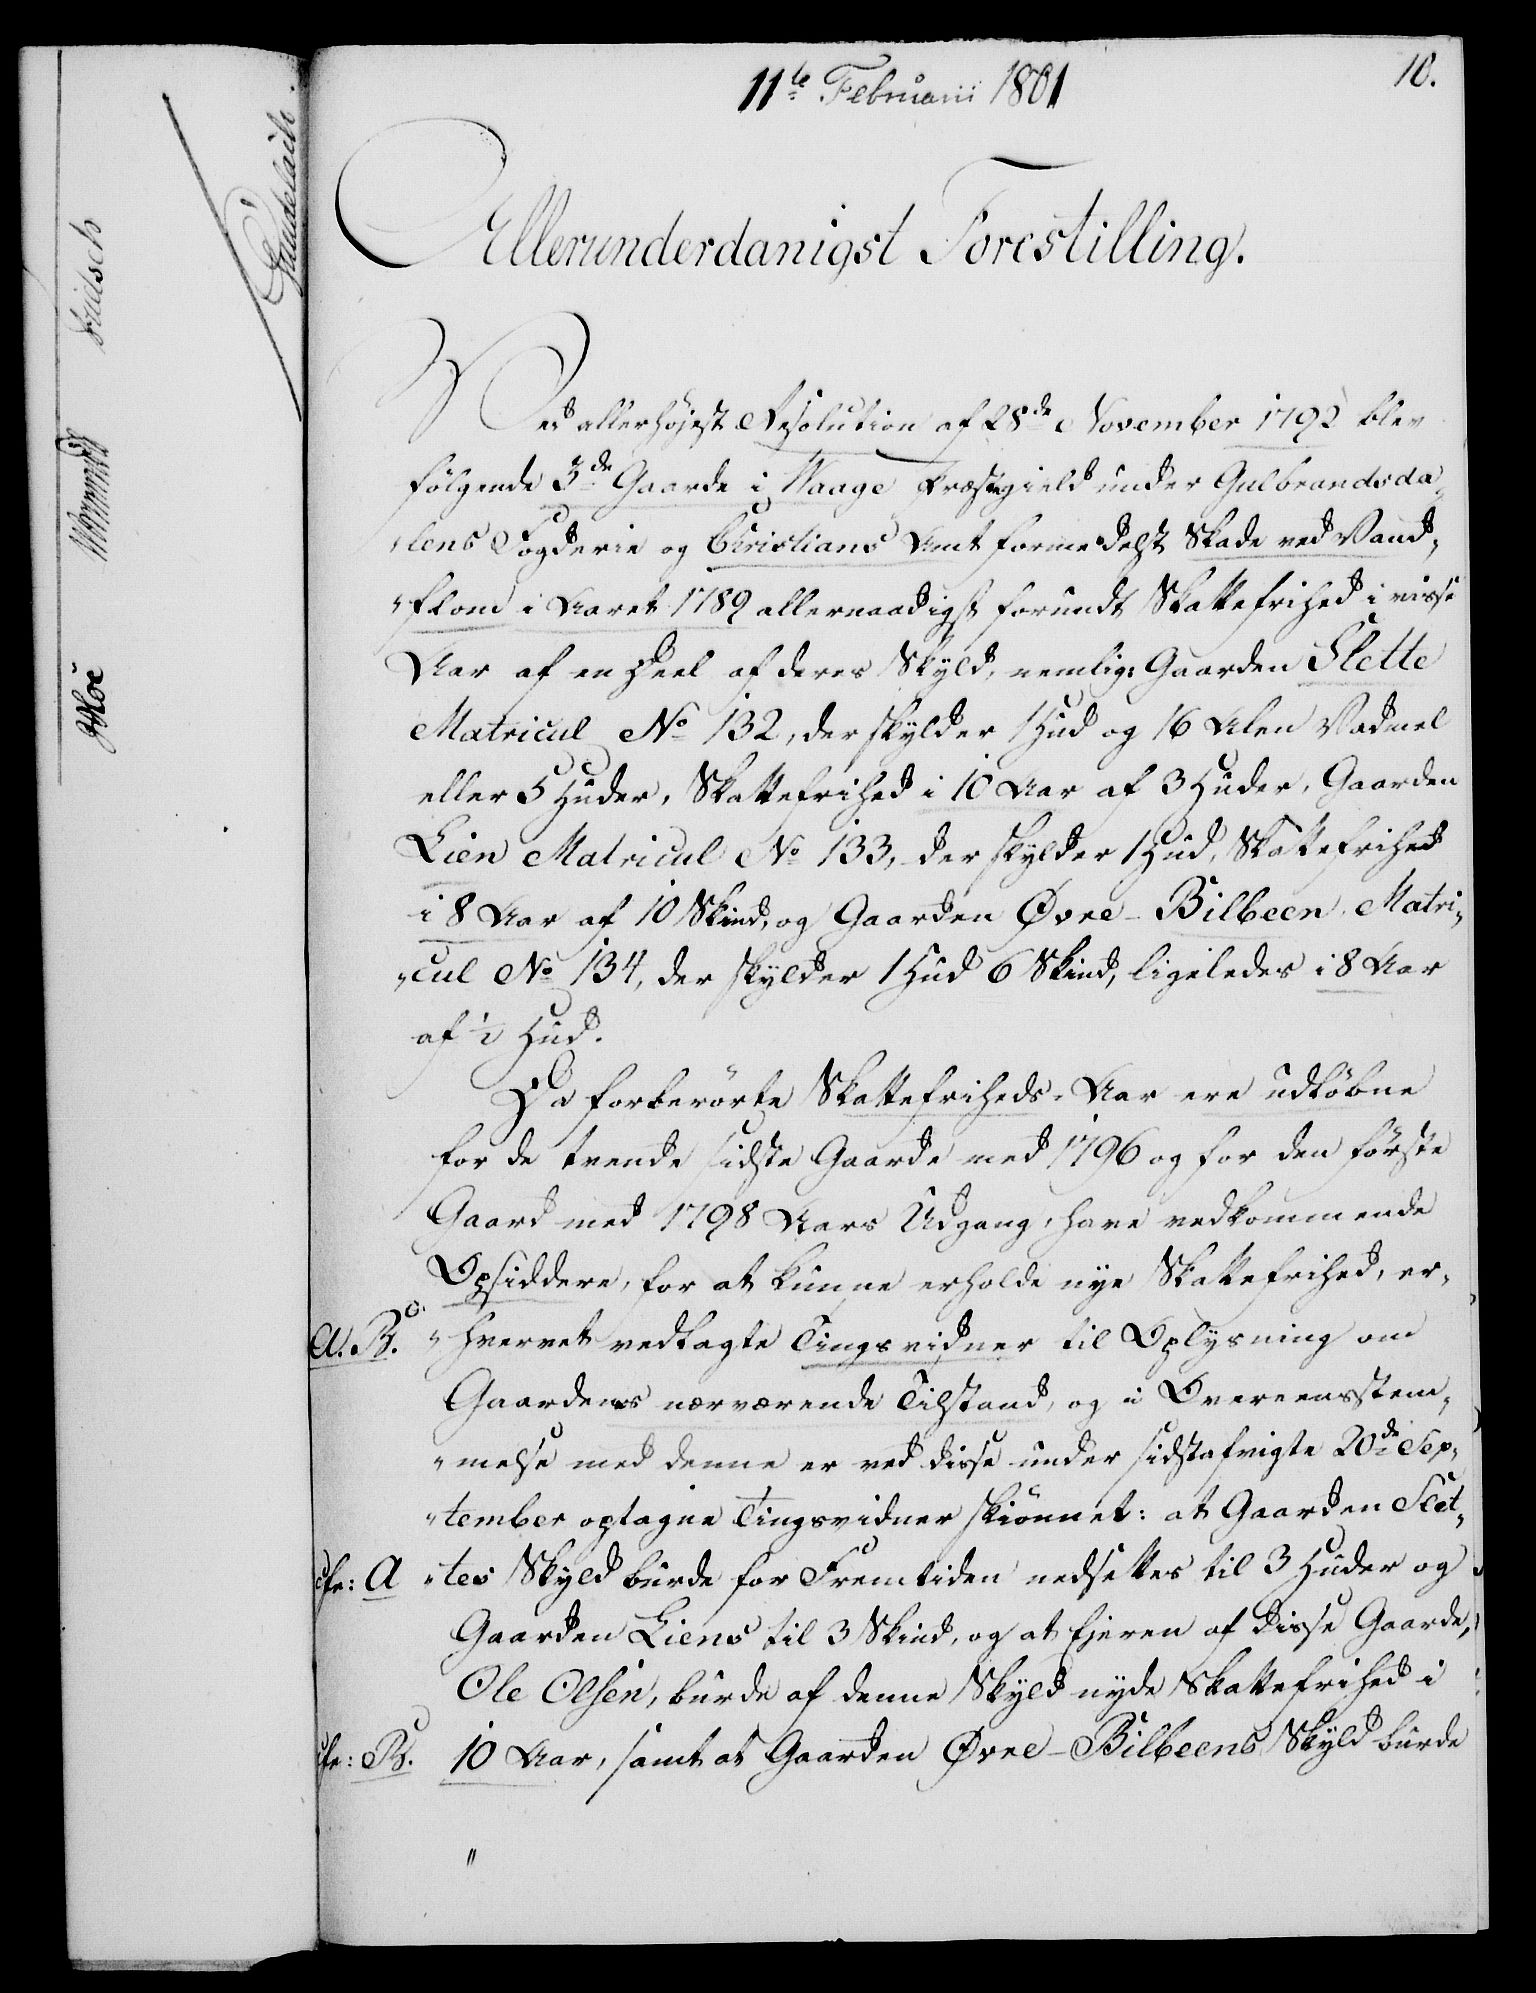 11te Februarii 1801
10.
Allerunderdanigst Forestilling.
Ved allerhöjest Resolution af 28de November 1792 blev
fölgende 3de Gaarde i Waage Præstegield under Gulbrandsda„
„lens Fogderie og Christians Amt formedelst Skade ved Vand„
„flom i Aaret 1789 allernaadigst forundt Skattefrihed i visse
Aar af en Deel af deres Skyld, nemlig: Gaarden Slette
Matricul No 132, der skylder 1 Hud og 16 Alen Vadmel
eller 5 Huder, Skattefrihed i 10 Aar af 3 Huder, Gaarden
Lien Matricul No 133, der skylder 1 Hud, Skattefrihed
i 8 Aar af 10 Skind, og Gaarden Øvre-Bilbeen Matri„
„cul No 134, der skylder 1 Hud 6 Skind, ligeledes i 8 Aar
af ½ Hud.
Da forberörte Skattefriheds-Aar ere udlöbne
for de tvende sidste Gaarde med 1796 og for den förste
Gaard med 1798 Aars Udgang, have vedkommende
Opsiddere, for at kunne erholde nye Skattefrihed, er„
A. B. „hvervet vedlagte Tingsvidner til Oplysning om
Gaardenes nærværende Tilstand, og i Overeensstem„
„melse med denne er ved disse under sidstafvigte 20de Sep„
„tember optagne Tingsvidner skiönnet: at Gaarden Slet„
cfr: A „tes Skyld burde for Fremtiden nedsettes til 3 Huder og
Gaarden Liens til 3 Skind, og at Ejeren af disse Gaarde,
Ole Olsen, burde af denne Skyld nyde Skattefrihed i
cfr: B. 10 Aar, samt at Gaarden Øvre-Bilbeens Skyld burde
"